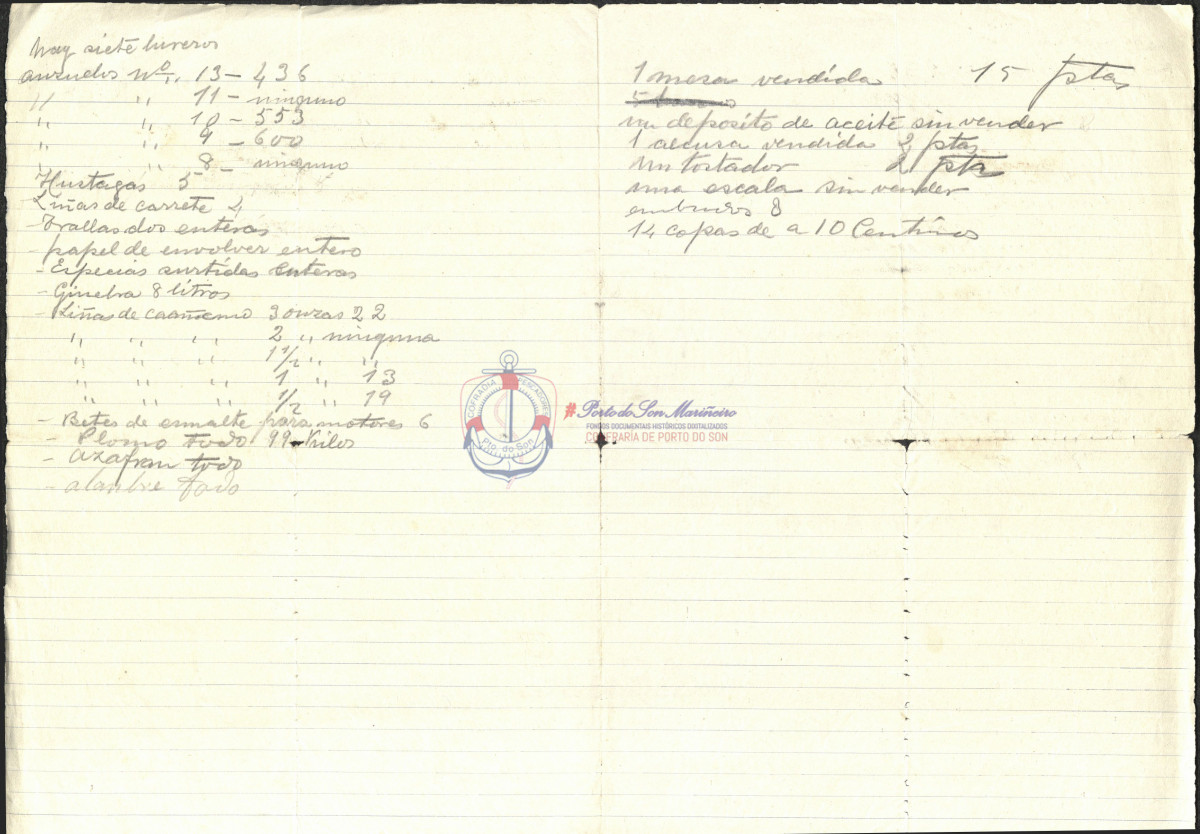 hay siete lureros
anzuelos Nº. 13 - 436
" " 11 - ninguno
" " 10 - 553
" " 9 - 600
" " 8 - ninguno
Hustagas 5 -
Liñas de carrete 4
- Trallas dos enteras
- papel de envolver entero
- Especias surtidas enteras
- Ginebra 8 litros
- Liñas de caañamo 3 onzas 22
" " " 2 " ninguna
" " " 1 1/2 " "
" " " 1 " 13
" " " 1/2 " 19
- Botes de esmalte para motores 6
- Plomo todo 99 - Kilos
- azafran todo
- alanbre todo
1 mesa vendida 15 ptas
un deposito de aceite sin vender
1 alcusa vendida 2 ptas
un tostador 2 pts
una escala sin vender
embudos 8
14 copas de a 10 Centimos
COFRADIA PESCADORES
Pto. do Son
#Porto do Son Mariñeiro
FONDOS DOCUMENTAIS HISTÓRICOS DIXITALIZADOS
CONFRARÍA DE PORTO DO SON